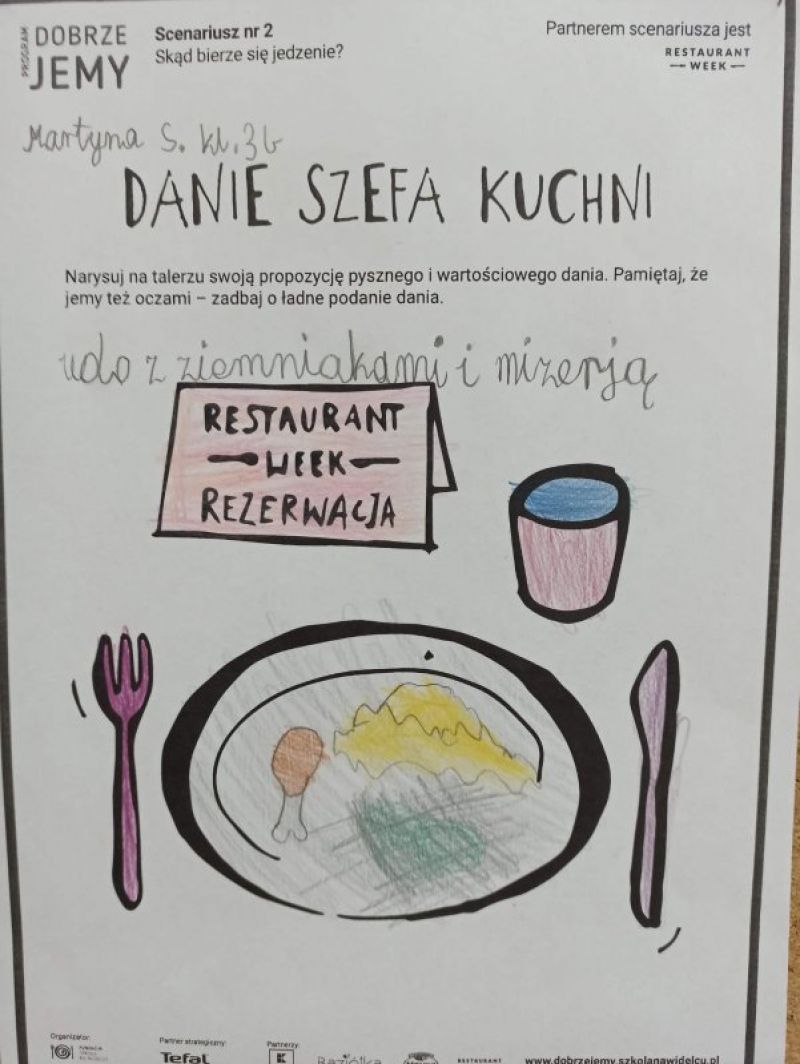 PROGRAM
DOBRZE
JEMY
Scenariusz nr 2
Skąd bierze się jedzenie?
Partnerem scenariusza jest
RESTAURANT
WEEK
Martyna S. kl. 3b
DANIE SZEFA KUCHNI
Narysuj na talerzu swoją propozycję pysznego i wartościowego dania. Pamiętaj, że
jemy też oczami – zadbaj o ładne podanie dania.
udo z ziemniakami i mizerją
RESTAURANT
WEEK
REZERWACJA
Organizator:
Partner strategiczny:
Tefal
Partnerzy:
K
RESTAURANT
www.dobrzejemy.szkolanawidelcu.pl